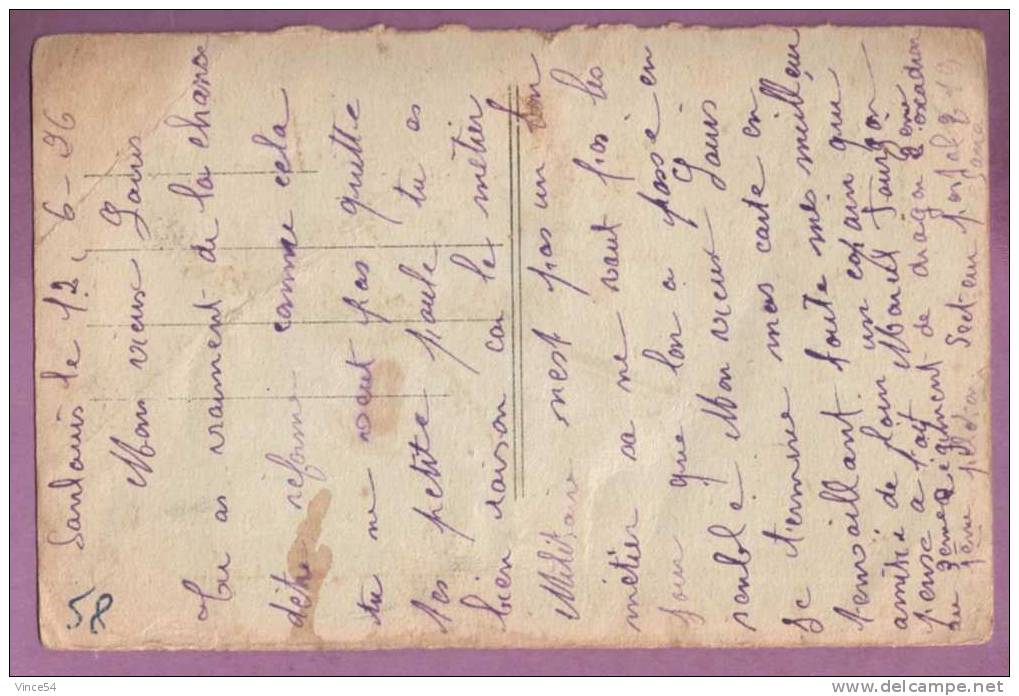 le 12, 6-36
Mon vieux Louis
Tu as vraiment de la chance
dêtre réforme comme cela
tu ne veut pas quitte
tes petite poule tu as
bien raison car le métier
Militaire nest pas un bon
métier sa ne vaut pas les
jour que lon a passe en
semble Mon vieux Louis
Je termine mas carte en
tenvoillant toute mes meilleur
amitié de loin un copain que
pense a toit Marcel
au régiment de dragon 2eme escadron
1ème peloton Secteur postal 2819
58
Vince54
delcampe.net